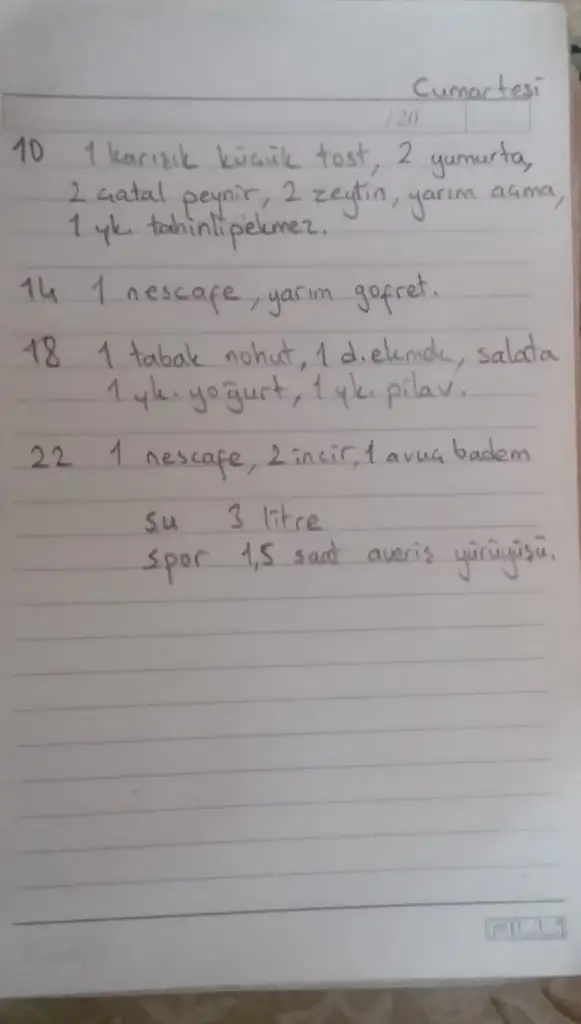 Cumartesi
/20
10 1 karışık küçük tost, 2 yumurta,
2 çatal peynir, 2 zeytin, yarım açma,
1 yk. tahinlipekmez.
14 1 nescafe, yarım gofret.
18 1 tabak nohut, 1 d. ekmek, salata
1 yk. yoğurt, 1 yk. pilav.
22 1 nescafe, 2 incir, 1 avuç badem
su 3 litre
spor 1,5 saat averiş yürüyüşü.